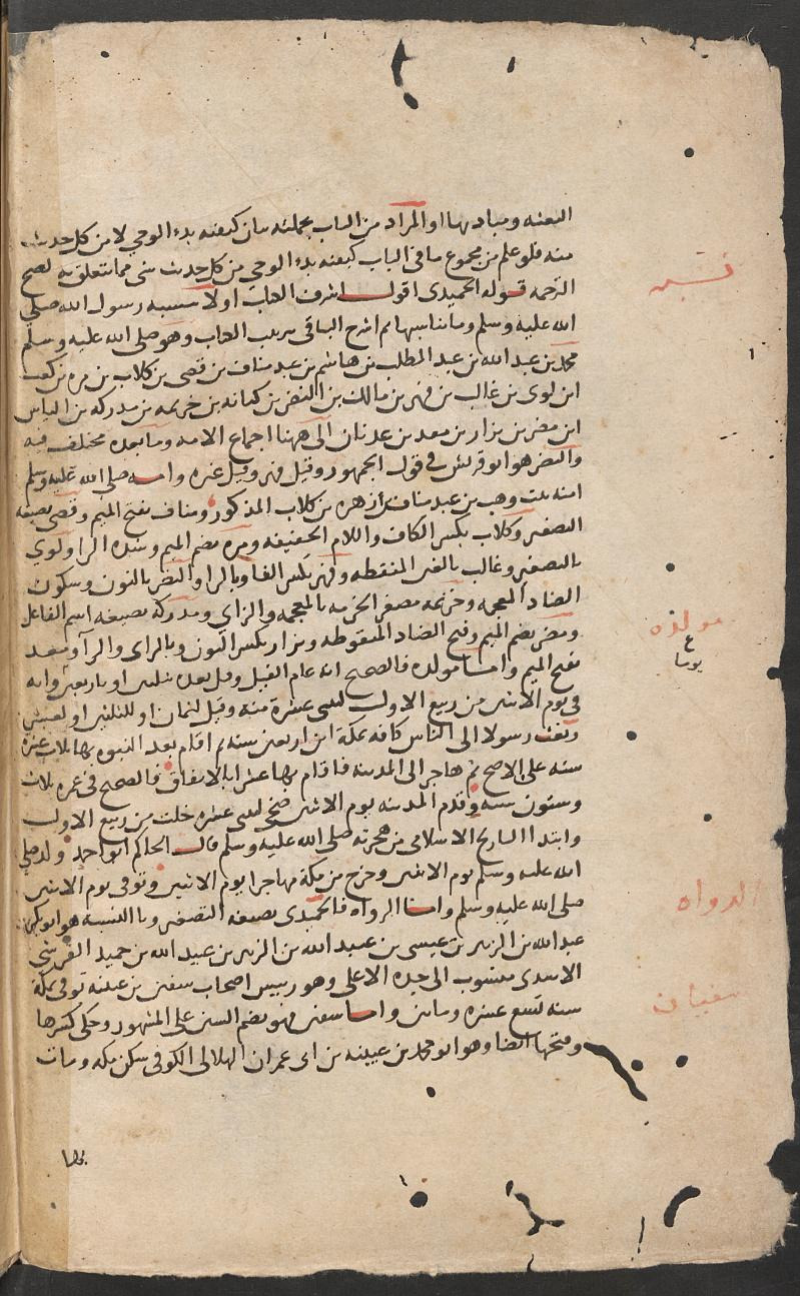 البعثه ومباديها او المراد من الباب بجملته بيان كيفيه بدء الوحي لا من كل حديث
منه فلو علم من مجموع ما في الباب كيفيه بدء الوحي من كل حديث شي مما يتعلق به لصح
الترجمه قوله الحميدي اقول اشرف الكتاب اولا بنسبه رسول الله صلى
الله عليه وسلم وما يناسبها ثم اشرح الباقي بترتيب الكتاب وهو صلى الله عليه وسلم
محمد بن عبد الله بن عبد المطلب بن هاشم بن عبد مناف بن قصي بن كلاب بن مره بن كعب
ابن لوي بن غالب بن فهر بن مالك بن النضر بن كنانه بن خزيمه بن مدركه بن الياس
ابن مضر بن نزار بن معد بن عدنان الى ههنا اجماع الامه وما بعده مختلف فيه
والنضر هو ابو قريش في قول الجمهور وقيل فهر وقيل غيره وامه صلى الله عليه وسلم
امنه بنت وهب بن عبد مناف بن زهره بن كلاب المذكور ومناف بفتح الميم وقصي بصيغه
التصغير وكلاب بكسر الكاف واللام الخفيفه ومره بضم الميم وشده الرا ولوي
بالتصغير وغالب بالغين المنقطه وفهر بكسر الفا وبالرا والنضر بالنون وسكون
الضاد المعجمه وخزيمه مصغر الخزمه بالمعجمه والزاي ومدركه بصيغه اسم الفاعل
ومضر بضم الميم وفتح الضاد المنقوطه ونزار بكسر النون وبالزاى والرآ ومعد
بفتح الميم واما مولده فالصحيح انه عام الفيل وقيل بعده بثلثين او باربعين وانه
في يوم الاثنين من ربيع الاول لثنى عشرة منه وقيل لثمان او لليلتين او لعشر
وبعث رسولا الى الناس كافه بمكة ابن اربعين سنه ثم اقام بعد النبوه بها ثلاث عشرة
سنه على الاصح ثم هاجر الى المدينه فاقام بها عشرا بالاتفاق فالصحيح في عمره ثلاث
وستون سنه وقدم المدينه يوم الاثنين ضحى لثنى عشره خلت من ربيع الاول
وابتدا التاريخ الاسلامي من هجرته صلى الله عليه وسلم قال الحاكم ابو احمد ولد صلى
الله عليه وسلم يوم الاثنين وخرج من مكة مهاجرا يوم الاثنين وتوفى يوم الاثنين
صلى الله عليه وسلم واما الرواه فالحميدى بصيغه التصغير وبا النسبه هو ابو بكر
عبد الله بن الزبير بن عيسى بن عبد الله بن الزبير بن عبيد الله بن حميد القرشي
الاسدى منسوب الى جده الاعلى وهو رييس اصحاب سفين بن عيينه توفى بمكة
سنه تسع عشره وماتين واما سفين فهو بضم السين على المشهور وحكى كسرها
وفتحها ايضا وهو ابو محمد بن عيينه بن ابى عمران الهلالى الكوفى سكن مكه ومات
بها
مولده
ع
يوما
الرواه
سفيان